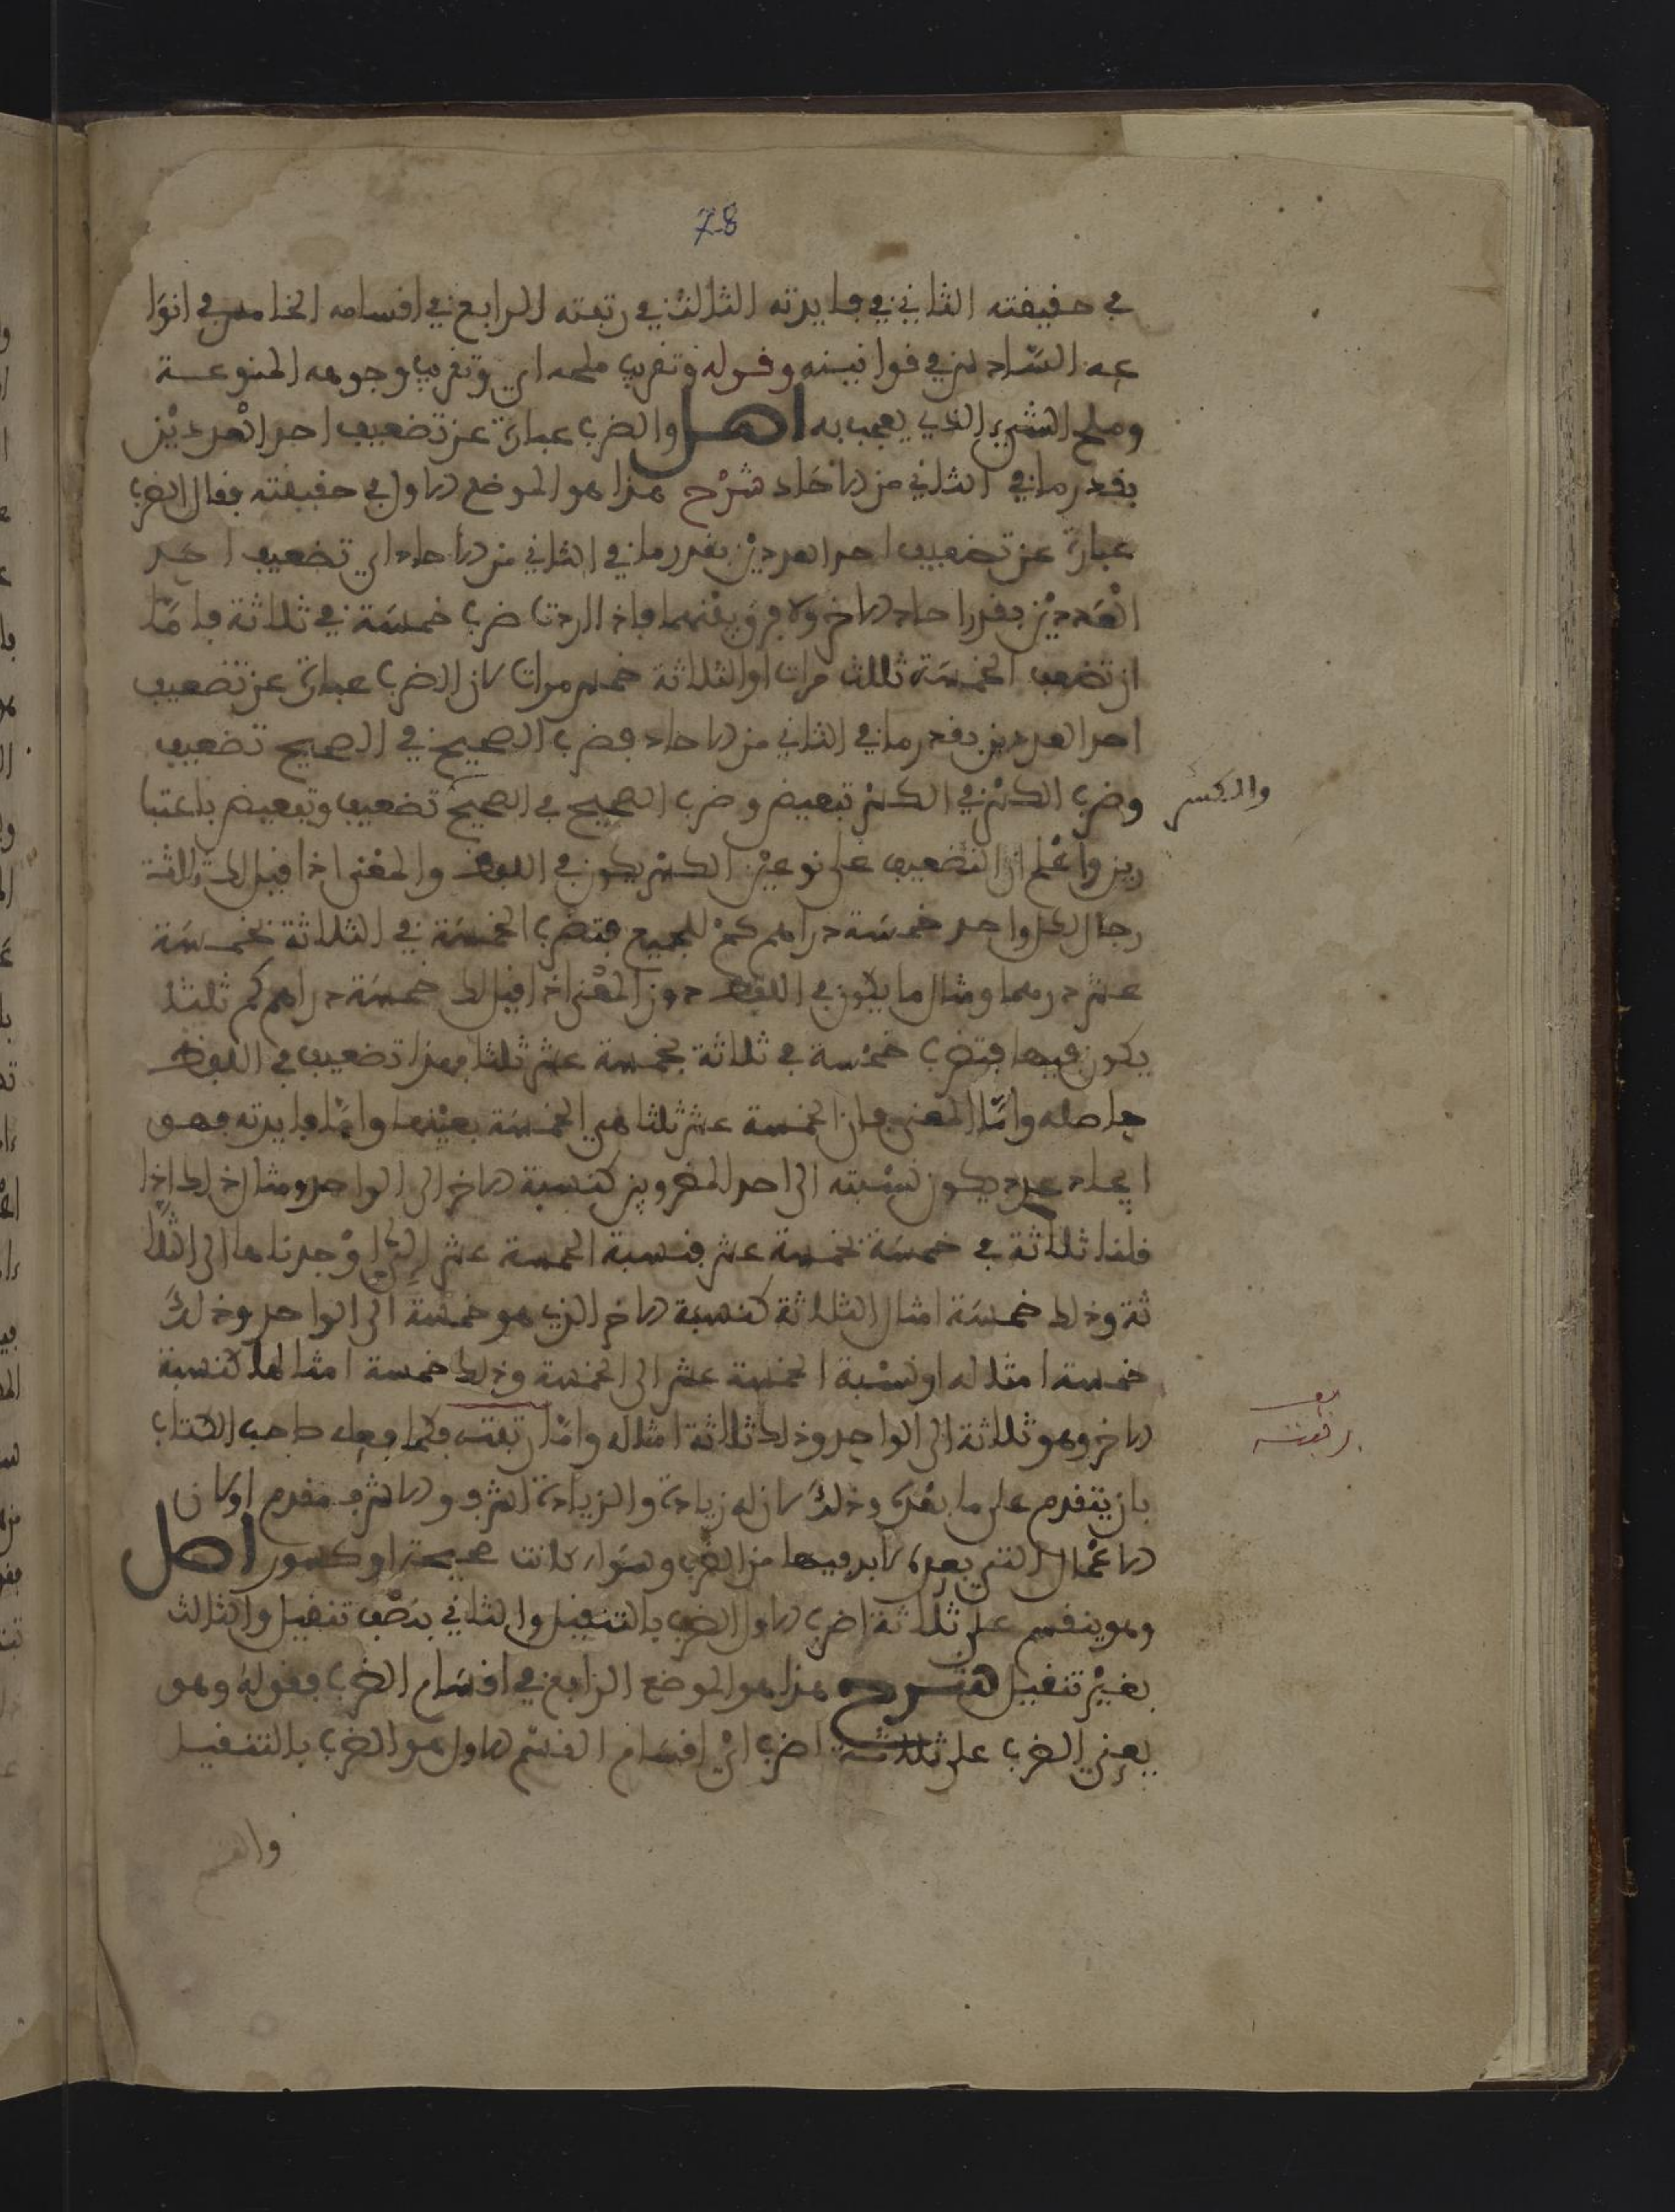 78
في حقيقته الثاني في فايدته الثالث في رتبته الرابع في اقسامه الخامس في انوا
عه السادس في قوانينه وقوله وتقريب ملحه اي وتقريب وجوهه المنوعة
وملح الشيء الذي يعجب به اصل والضرب عبارة عن تضعيف احد العددين
بقدر ما في الثاني من الاحاد شرح هذا هو الموضع الاول في حقيقته فقال الضرب
عبارة عن تضعيف احد العددين بقدر ما في الثاني من الاحاد اي تضعيف احد
العددين بقدر احاد الاخر ولا فرق بينهما فاذا اردت ضرب خمسة في ثلاثة فاما
ان تضعف الخمسة ثلاث مرات او الثلاثة خمس مرات لان الضرب عبارة عن تضعيف
احد العددين بقدر ما في الثاني من الاحاد فضرب الصحيح في الصحيح تضعيف
وضرب الكسر في الكسر تبعيض وضرب الصحيح في الصحيح تضعيف وتبعيض باعتبا
والكسر
رين واعلم ان التضعيف على نوعين الكسر يكون في اللفظ والمعنى اذا قيل لك ثلاثة
رجال لكل واحد خمسة دراهم كم للجميع فتضرب الخمسة في الثلاثة بخمسة
عشر درهما ومثال ما يكون في اللفظ دون المعنى اذا قيل لك خمسة دراهم كم ثلثا
يكون فيها فتضرب خمسة في ثلاثة بخمسة عشر ثلثا فهذا تضعيف في اللفظ
حاصله واما المعنى فان الخمسة عشر ثلثا هي الخمسة بعينها واما فايدته فهو
ايجاد عدد يكون نسبته الى احد المضروبين كنسبة الاخر الى الواحد ومثال ذلك اذا
قلنا ثلاثة في خمسة بخمسة عشر فنسبة الخمسة عشر التي وجدناها الى الثلا
ثة وذلك خمسة امثال الثلاثة كنسبة الاخر الذي هو خمسة الى الواحد وذلك
خمسة امثاله او نسبة الخمسة عشر الى الخمسة وذلك خمسة امثالها كنسبة
الاخر وهو ثلاثة الى الواحد وذلك ثلاثة امثاله واما رتبته فكما فعل صاحب الكتاب
رتبته
بان يتقدم على ما بعده وذلك لانه زيادة والزيادة اشرف والاشرف مقدم او لان
الاعمال التي بعده لابد فيها من الضرب وسواء كانت صحيحة او كسور اصل
وهو ينقسم على ثلاثة اضرب الاول الضرب بالتنقيل والثاني بنصف تنقيل والثالث
بغير تنقيل شرح هذا هو الموضع الرابع في اقسام الضرب فقوله وهو
يعني الضرب على ثلاثة اضرب اي اقسام القسم الاول هو الضرب بالتنقيل
والقسم